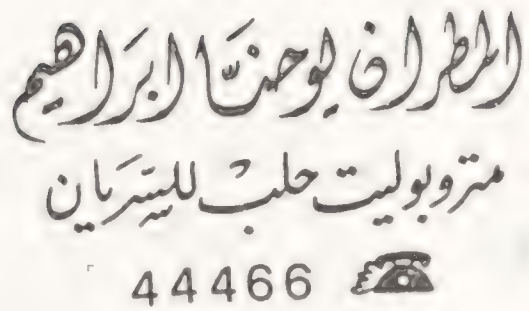 المطران يوحنَّا ابَراهيم
متروبوليت حلبْ للسِّرَيان
44466